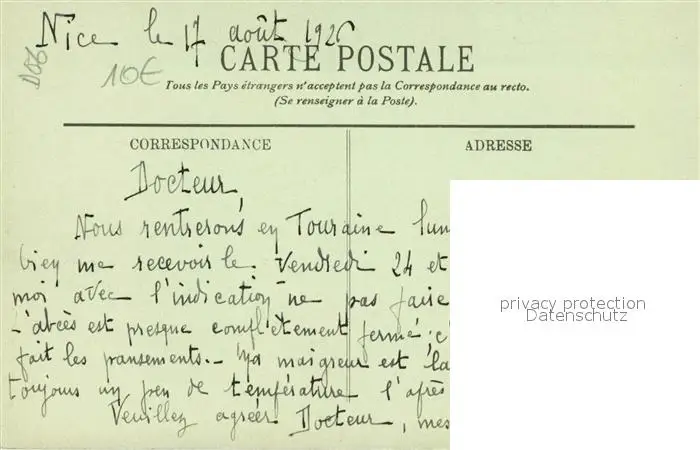 Nice le 17 août 1926
D06
10€
CARTE POSTALE
Tous les Pays étrangers n'acceptent pas la Correspondance au recto.
(Se renseigner à la Poste).
CORRESPONDANCE
ADRESSE
Docteur,
Nous rentrerons en Touraine lun
bien me recevoir le Vendredi 24 et
moi avec l'indication ne pas faire
L'abcès est presque complètement fermé; c'
fait les pansements. - Ma maigreur est la
toujours un peu de température l'après
Veuillez agréer Docteur, mes
privacy protection
Datenschutz